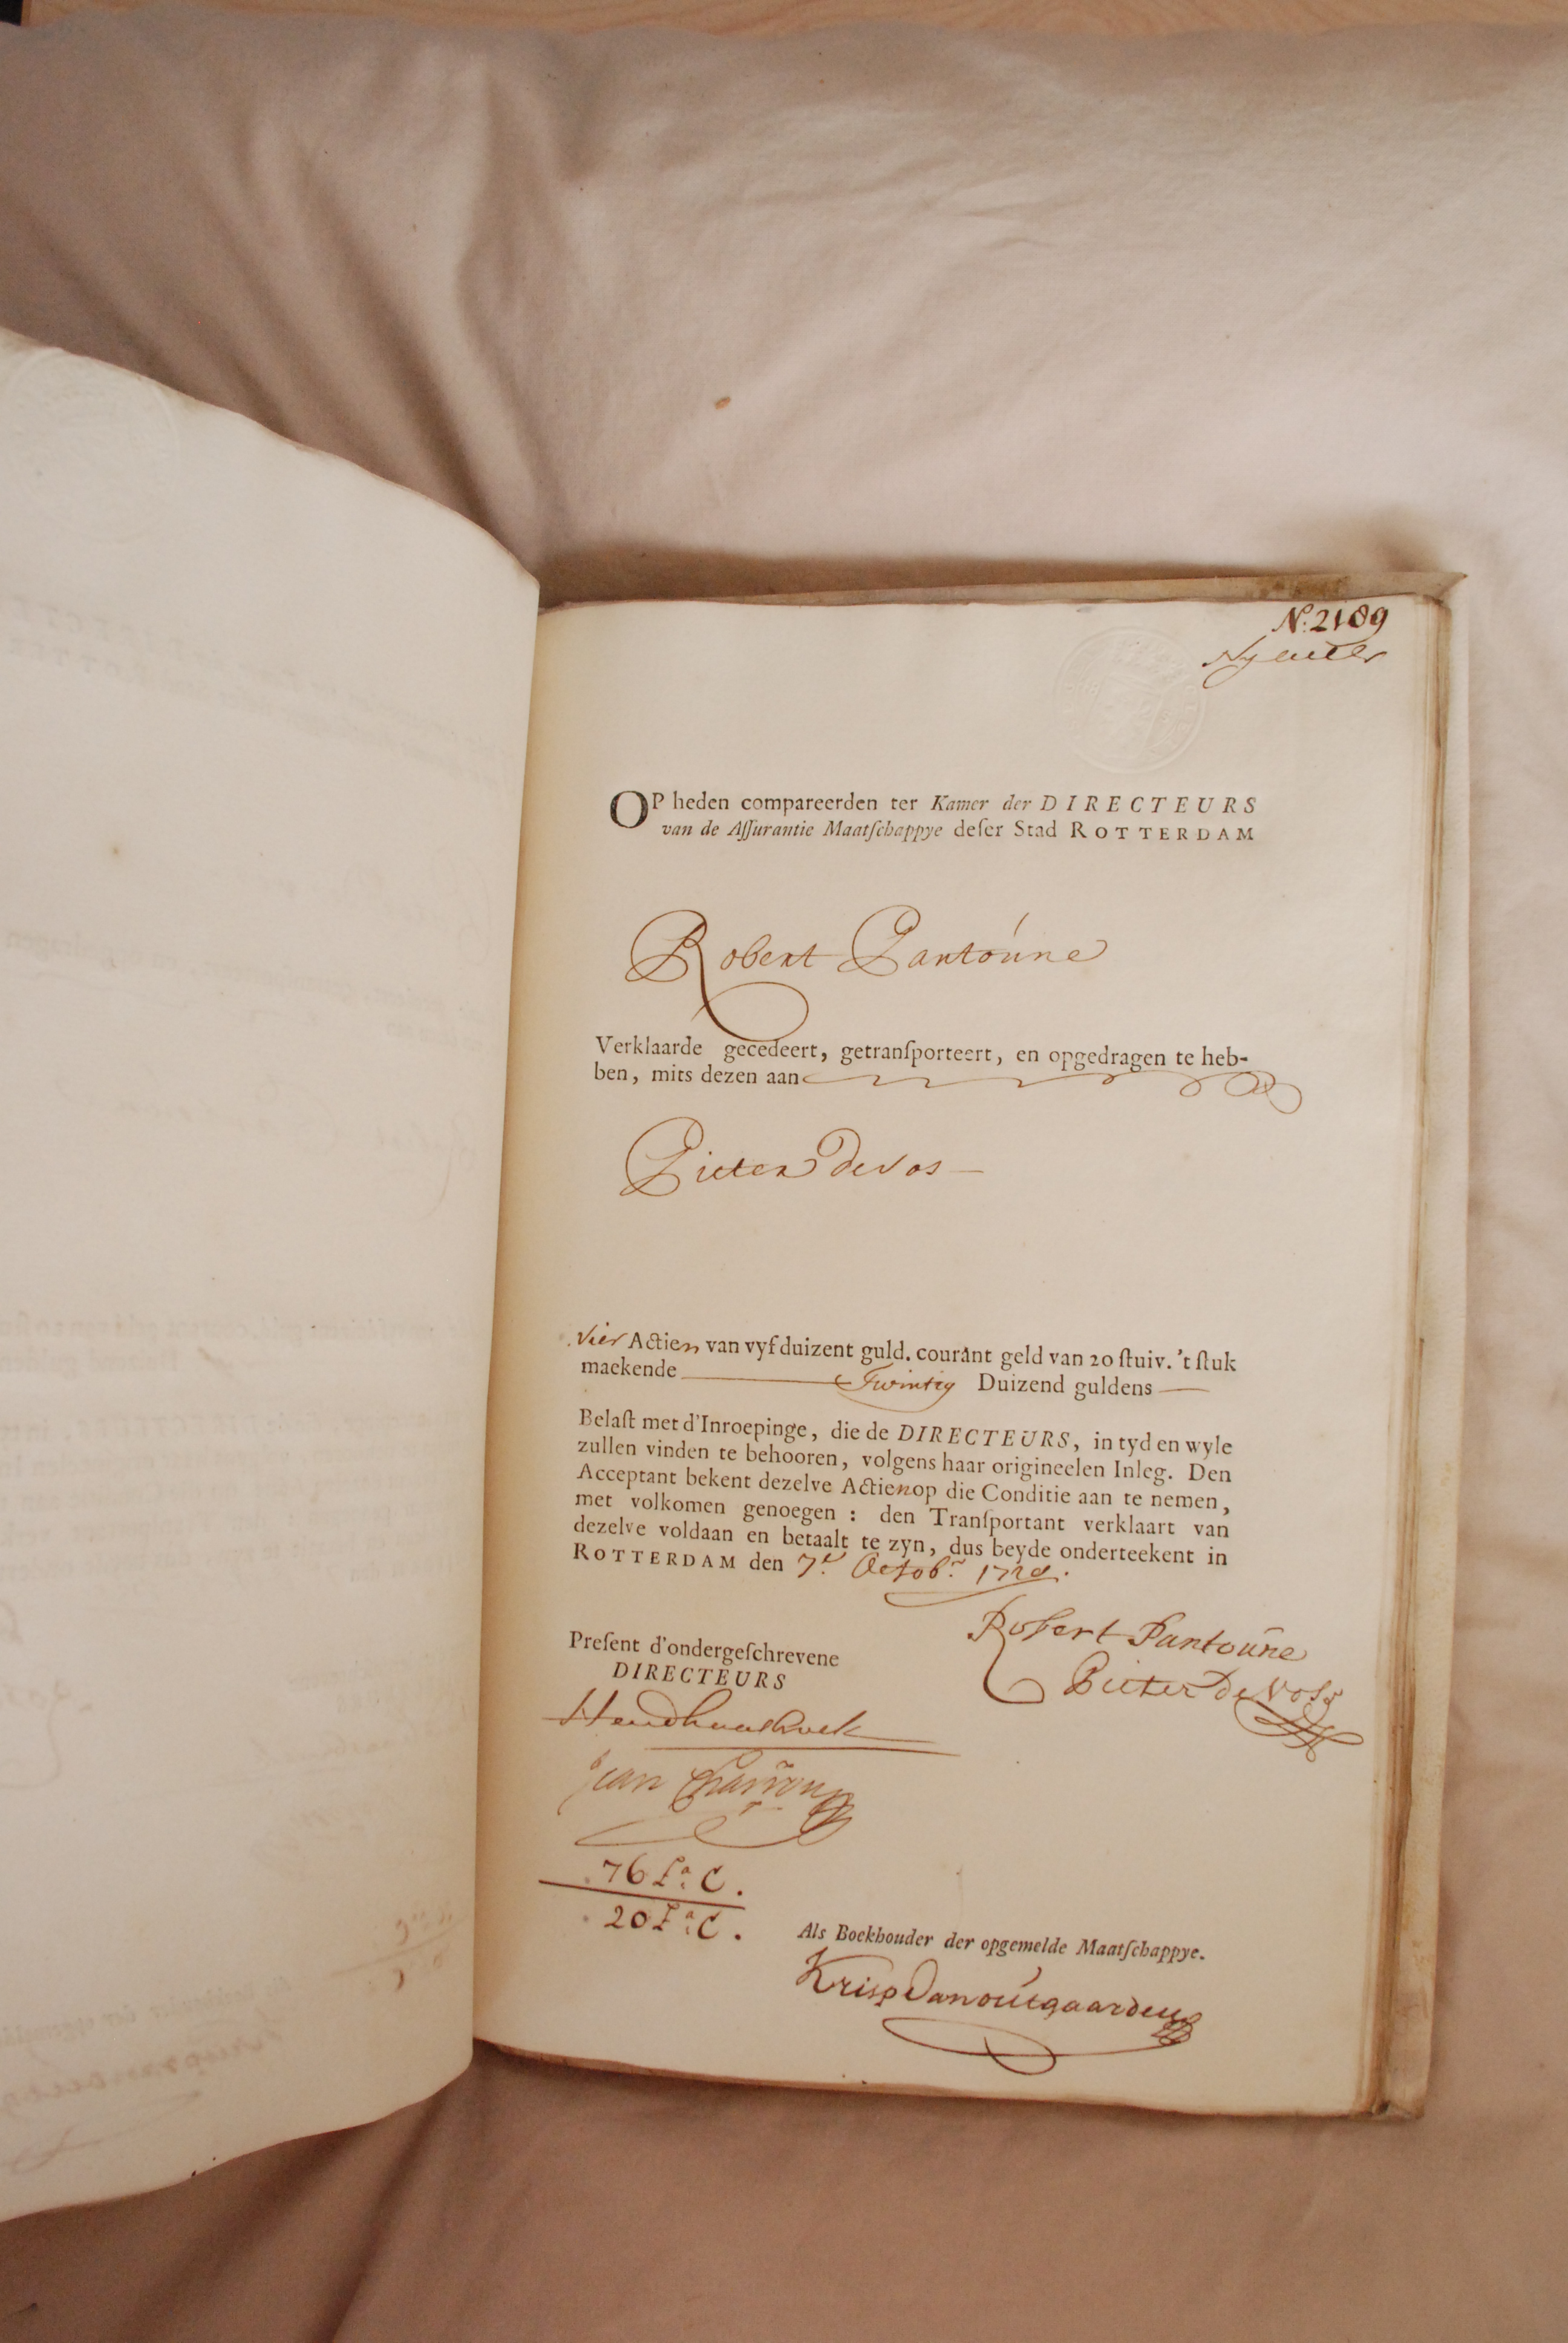 N.º 2189
OP heden compareerden ter Kamer der DIRECTEURS
van de Aſſurantie Maatſchappye deſer Stad ROTTERDAM
Robert Pantoúne
Verklaarde gecedeert, getranſporteert, en opgedragen te heb-
ben, mits dezen aan
Pieter de Vos —
vier Actien van vyf duizent guld. courant geld van 20 ſtuiv. 't ſtuk
maekende — Twintig Duizend guldens —
Belaſt met d'Inroepinge, die de DIRECTEURS, in tyd en wyle
zullen vinden te behooren, volgens haar origineelen Inleg. Den
Acceptant bekent dezelve Actien op die Conditie aan te nemen,
met volkomen genoegen : den Tranſportant verklaart van
dezelve voldaan en betaalt te zyn, dus beyde onderteekent in
ROTTERDAM den 7.e Octobr. 1720.
Robert Pantoúne
Pieter de Vos
Preſent d'ondergeſchrevene
DIRECTEURS
Jean Charron
76 Lª C.
20 Lª C.
Als Boekhouder der opgemelde Maatſchappye.
Krisp Vanoutgaarden